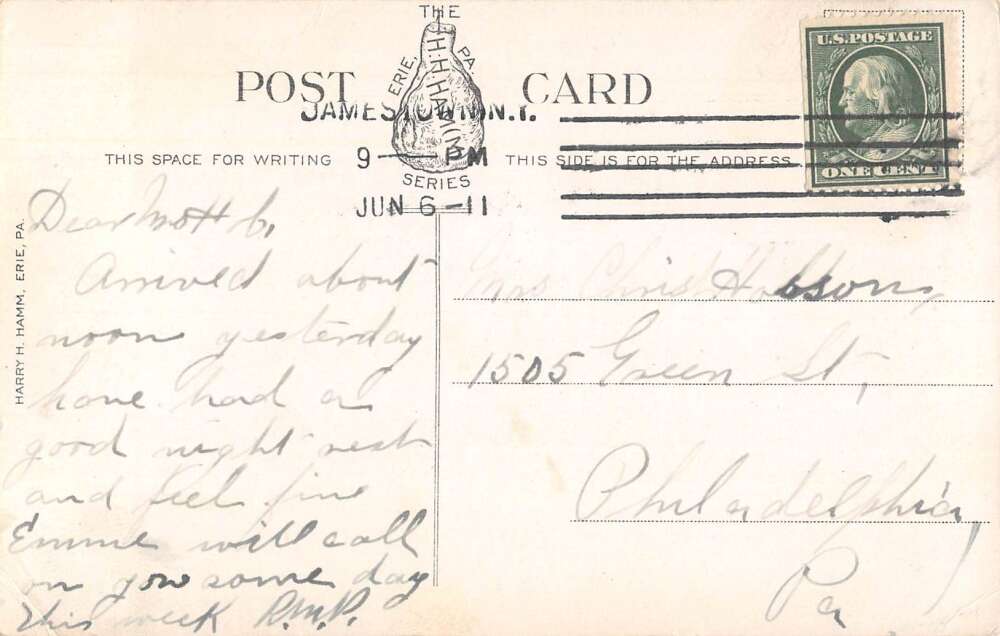 THE
H. H. HAMM
ERIE, PA.
SERIES
POST CARD
JAMESTOWN N.Y.
9 — PM
JUN 6 - 11
U.S. POSTAGE
ONE CENT
THIS SPACE FOR WRITING
THIS SIDE IS FOR THE ADDRESS
HARRY H. HAMM, ERIE, PA.
Dear
Arrived about
noon yesterday
have had a
good night rest
and feel fine
Emme will call
on you some day
this week R.M.P.
Mrs Chris Hobson,
1505 Green St,
Philadelphia,
Pa